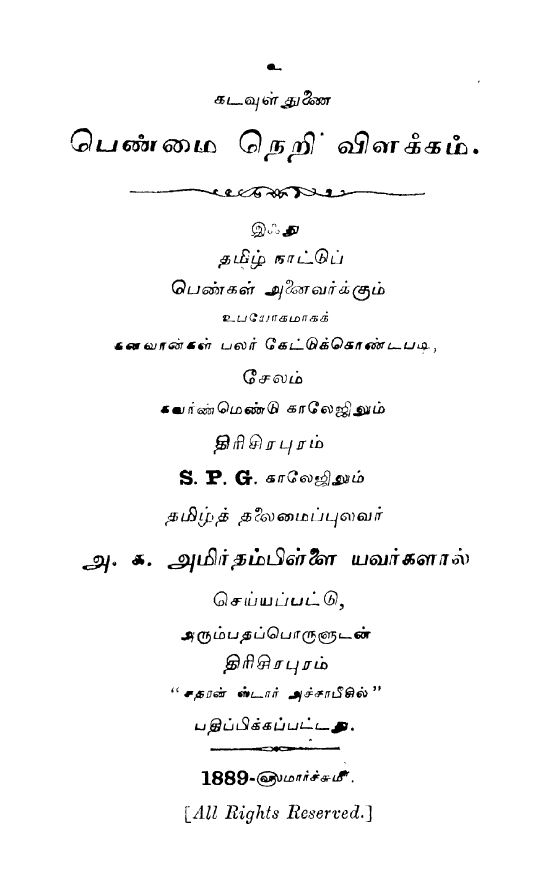 உ
கடவுள் துணை
பெண்மை நெறி விளக்கம்.
இஃது
தமிழ் நாட்டுப்
பெண்கள் அனைவர்க்கும்
உபயோகமாகக்
கனவான்கள் பலர் கேட்டுக்கொண்டபடி,
சேலம்
கவர்ண்மெண்டு காலேஜிலும்
திரிசிரபுரம்
S. P. G. காலேஜிலும்
தமிழ்த் தலைமைப்புலவர்
அ. க. அமிர்தம்பிள்ளை யவர்களால்
செய்யப்பட்டு,
அரும்பதப்பொருளுடன்
திரிசிரபுரம்
“சதரன் ஸ்டார் அச்சாபீசில்”
பதிப்பிக்கப்பட்டது.
1889-௵மார்ச்சு௴.
[All Rights Reserved.]